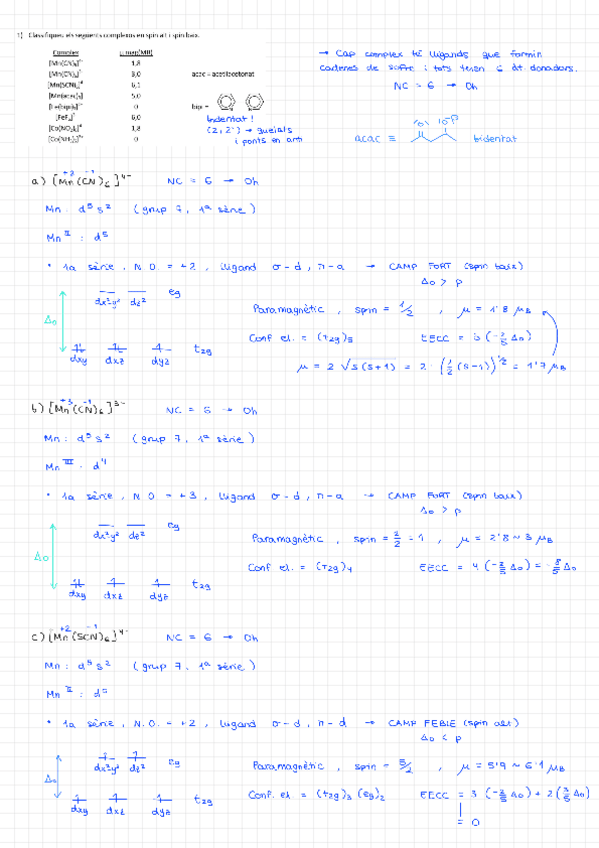 1) Classifiqueu els següents complexos en spin alt i spin baix.
Complex μ exp(MB)
[Mn(CN)6]4- 1,8
[Mn(CN)6]3- 3,0
[Mn(SCN)6]4- 6,1
[Mn(acac)3] 5,0
0
[FeF6] 6,0
[Co(NO2)6]4- 1,8
[Co(NH3)6]3+ 0
acac = acetilacetonat
bipi =
bidentat!
(2, 2') → queials
i ponts en anti
→ Cap complex té lligands que formin
cadenes de sofre i tots tenen 6 àt. donadors.
NC = 6 → Oh
acac ≡ bidentat
+2 -1
a) [Mn(CN)6]4- NC = 6 → Oh
Mn: d5 s2 (grup 7, 1ª sèrie)
Mn II : d5
• 1a sèrie, N.O. = +2, lligand σ-d, π-a → CAMP FORT (spin baix)
Δo > P
dx2-y2 dz2 eg
Δo
dxy dxz dyz t2g
Paramagnètic, spin = 1/2, μ = 1'8 μB
Conf el. = (t2g)5 EECC = 5 (-2/5 Δo)
μ = 2 √s(s+1) = 2 · (1/2 (s-1))^1/2 = 1'7 μB
+3 -1
b) [Mn(CN)6]3- NC = 6 → Oh
Mn: d5 s2 (grup 7, 1ª sèrie)
Mn III : d4
• 1a sèrie, N.O. = +3, lligand σ-d, π-a → CAMP FORT (spin baix)
Δo > P
dx2-y2 dz2 eg
Δo
dxy dxz dyz t2g
Paramagnètic, spin = 2/2 = 1, μ = 2'8 ~ 3 μB
Conf el. = (t2g)4 EECC = 4 (-2/5 Δo) = -8/5 Δo
+2 -1
c) [Mn(SCN)6]4- NC = 6 → Oh
Mn: d5 s2 (grup 7, 1ª sèrie)
Mn II : d5
• 1a sèrie, N.O. = +2, lligand σ-d, π-d → CAMP FEBLE (spin alt)
Δo < P
dx2-y2 dz2 eg
Δo
dxy dxz dyz t2g
Paramagnètic, spin = 5/2, μ = 5'9 ~ 6'1 μB
Conf. el = (t2g)3 (eg)2 EECC = 3 (-2/5 Δo) + 2 (3/5 Δo)
= 0